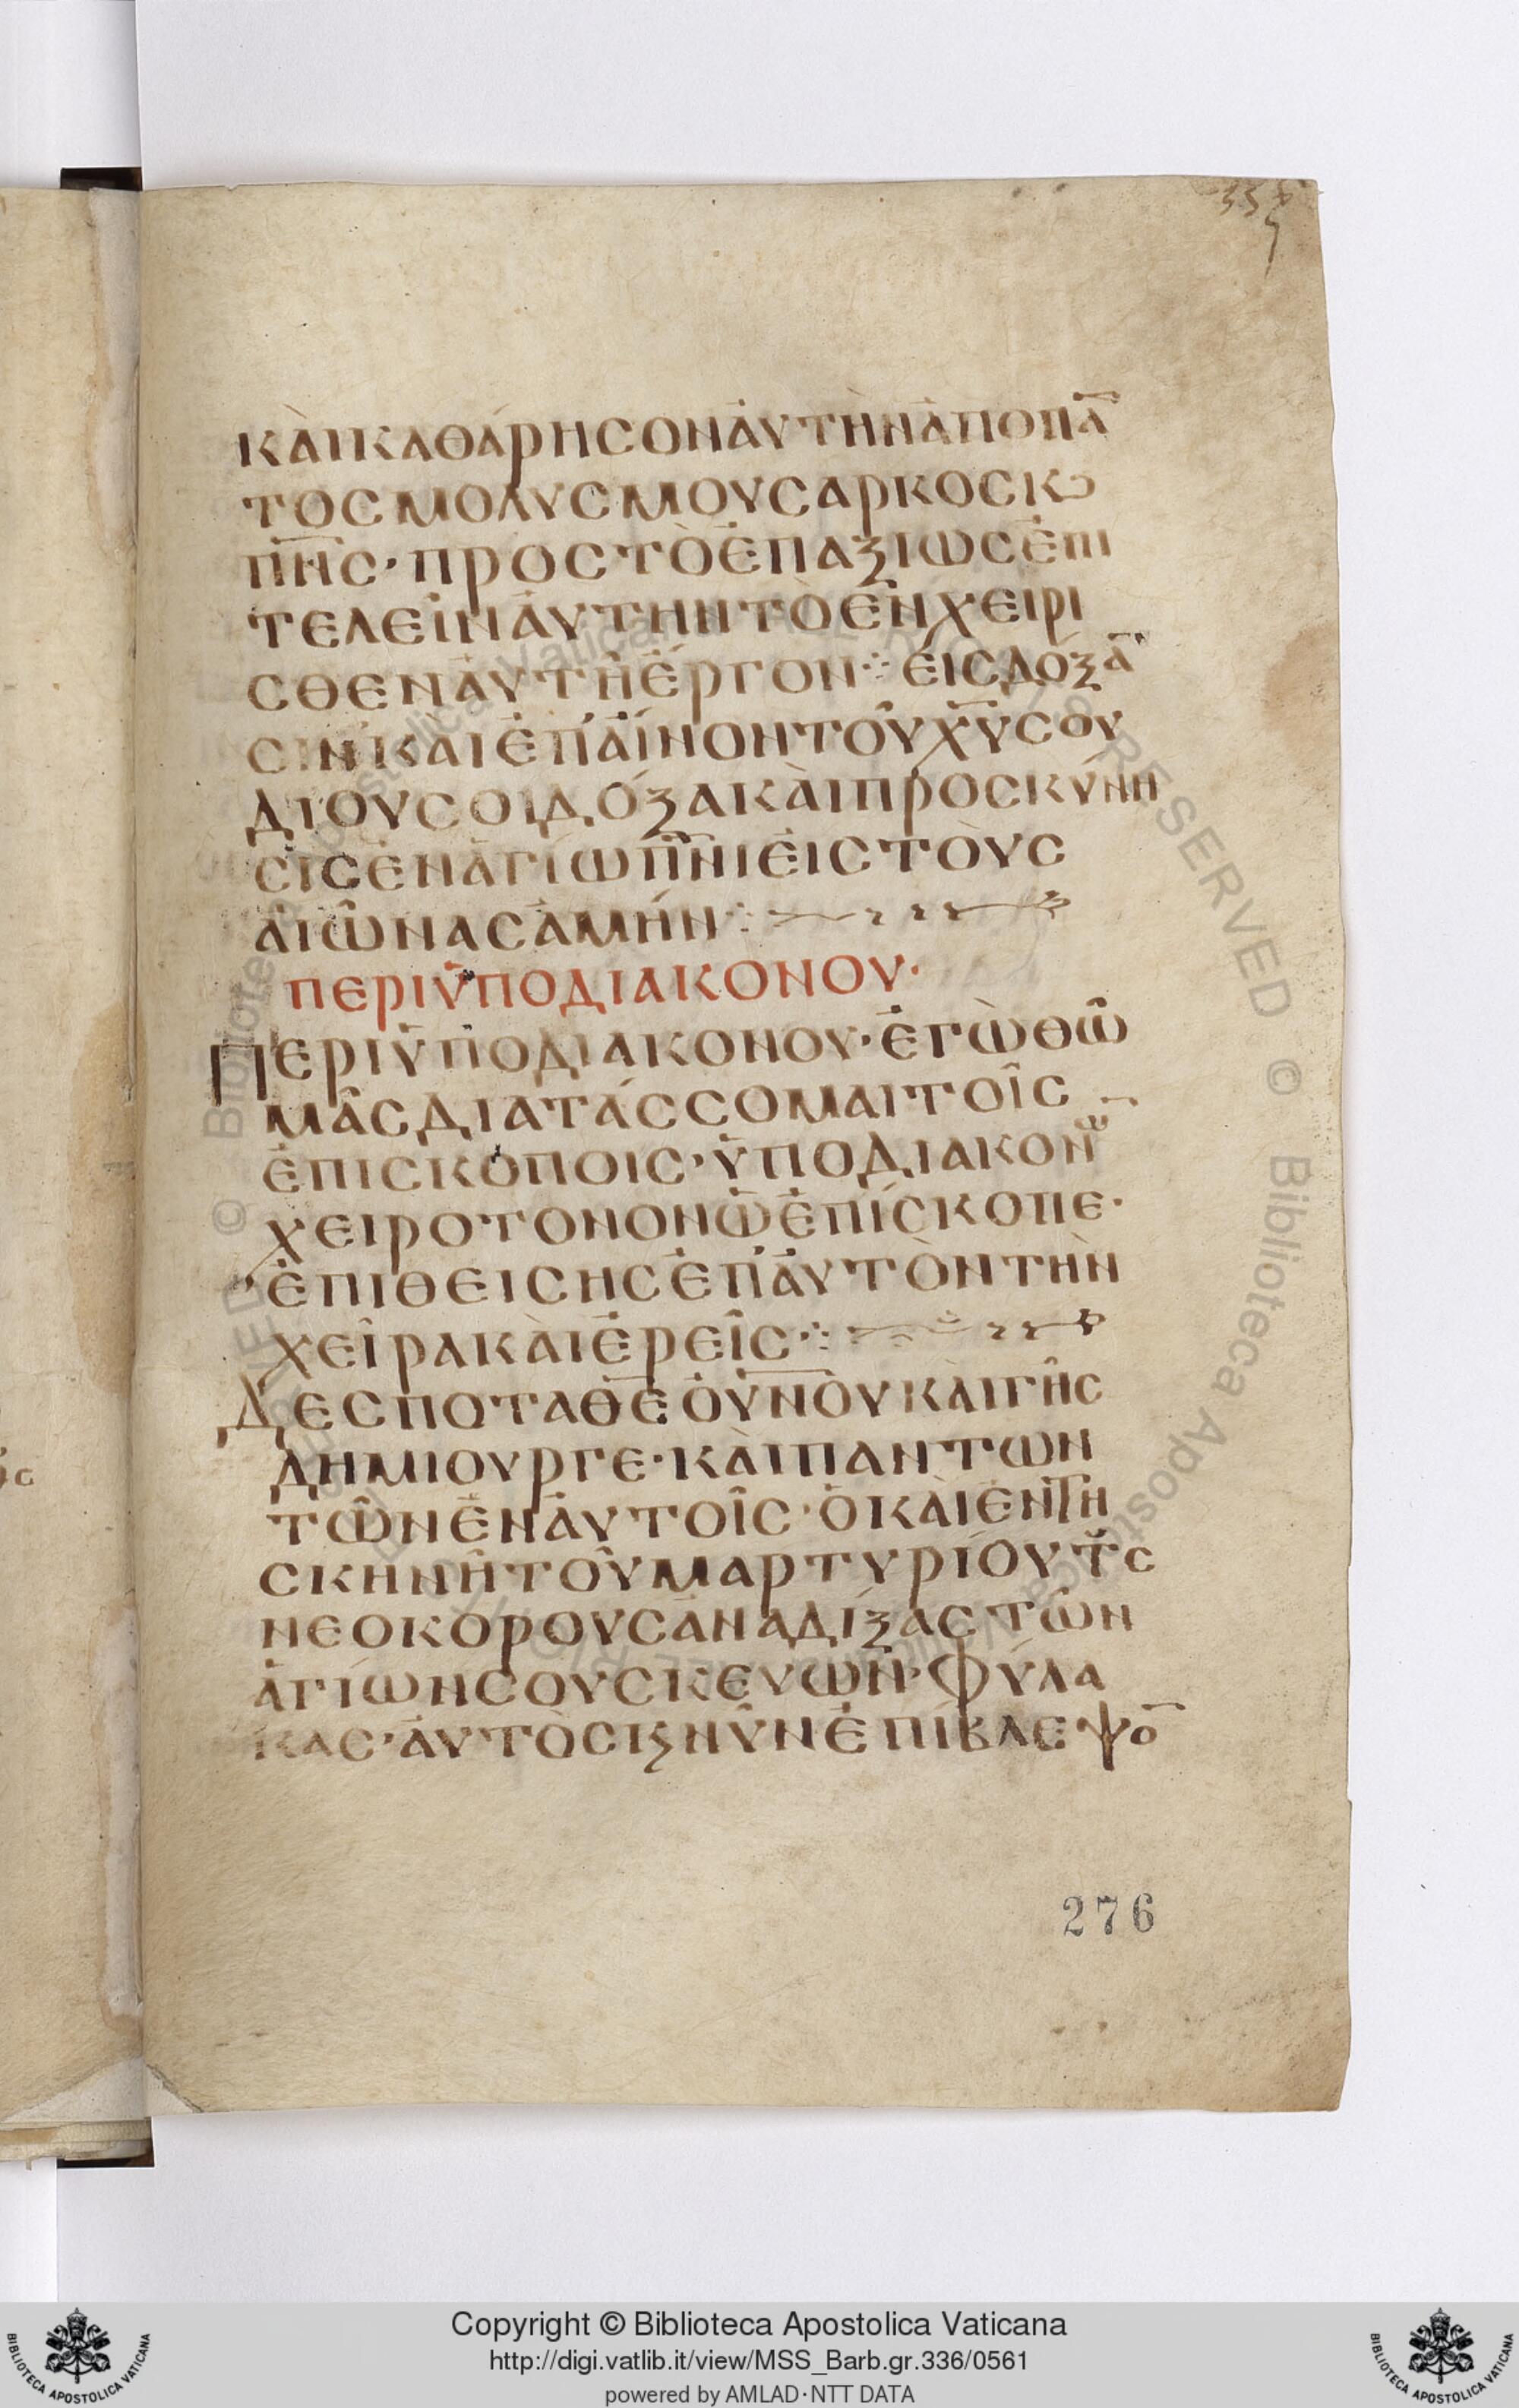 337
ΚᾺΙΚΑΘΆΡΗСΟΝἈΥΤῊΝἈΠΟΠΑ̅
ΤΟСΜΟΛΥСΜΟΥСΑΡΚΟСΚ
Π̅Ν̅С·ΠΡΟСΤῸἘΠΑΞΙΩСἘΠΙ
ΤΕΛΕῖΝἈΥΤΗΝΤῸἘΝΧΕΙΡΙ
СΘΕΝἈΥΤΗ͂ἜΡΓΟΝ·:ἐΙСΔΌΞΑ̅
СῚΝ ΚΑΙἘΠΑΙΝΟΝΤΟΥ͂Χ̅Υ̅СΟΥ
ΔΙΟΥСΟΙΔΌΞΑΚᾺΙΠΡΟСΚΎΝΗ
СΙСἘΝἉΓΊΩΠ̅Ν̅ΙἘΙСΤΟῪС
ἈΙΩ͂ΝΑСἈΜΉΝ·:
ΠΕΡΙὙΠΟΔΙΑΚΟΝΟΥ·
ΠΕΡΙὙΠΟΔΙΑΚΟΝΟΥ·ἘΓῺΘΩ͂
ΜΑ͂СΔΙΑΤΆССΟΜΑΙΤΟΙ͂С
ἘΠΙСΚΟΠΟΙС·ὙΠΟΔΙΑΚΟΝ
ΧΕΙΡΟΤΟΝΟΝΩ͂ἘΠΊСΚΟΠΕ·
ἘΠΙΘΕΙСΗСἘΠἈΥΤῸΝΤῊΝ
ΧΕΙ͂ΡΑΚᾺΙἘΡΕΙ͂С·:
ΔΕСΠΟΤΑΘ̅Ε̅ΟΥ̅Ν̅ΟΥΚᾺΙΓΗ͂С
ΔΗΜΙΟΥΡΓΕ·ΚᾺΙΠΑΝΤΩΝ
ΤΩ͂ΝἘΝἈΥΤΟΙ͂С·ὉΚᾺΙἘΝΤΗ
СΚΗΝΗ͂ΤΟΥ͂ΜΑΡΤΥΡΊΟΥΤ̆С
ΝΕΟΚΟΡΟΥСἈΝΑΔΊΞΑСΤΩ͂Ν
ἉΓΊΩΝСΟΥСΚΕΥΩ͂Ν·ΦΎΛΑ
ΚΑС·ἈΥΤῸСΚϗΝΥ͂ΝἘΠΊΒΛΕΨΟ̅
276
Copyright © Biblioteca Apostolica Vaticana
http://digi.vatlib.it/view/MSS_Barb.gr.336/0561
powered by AMLAD·NTT DATA
BIBLIOTECA APOSTOLICA VATICANA
BIBLIOTECA APOSTOLICA VATICANA